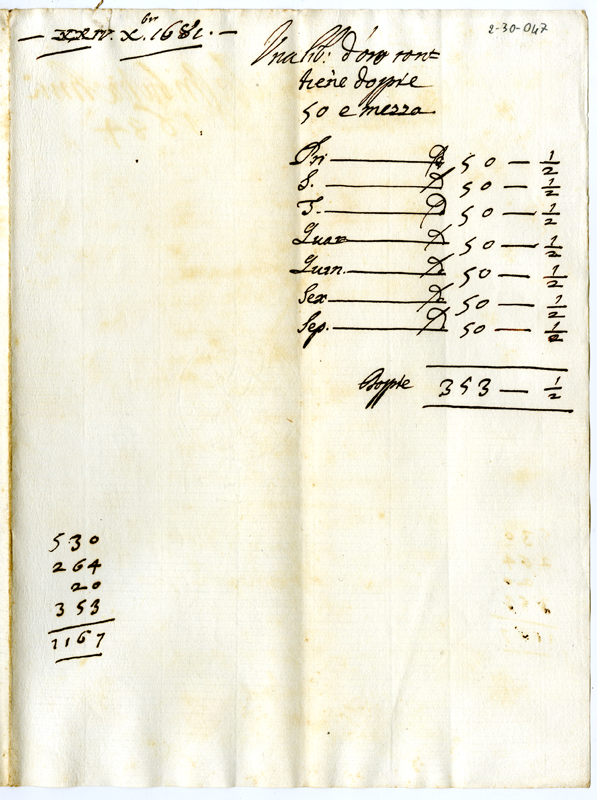 — xxiv. Xbr. 1681. —
2-30-047
Una lib: d'oro con=
tiene doppie
50 e mezza
Pri — D. 50 — 1/2
S. — D. 50 — 1/2
T. — D. 50 — 1/2
Quar — D. 50 — 1/2
Quin. — D. 50 — 1/2
Sex — D. 50 — 1/2
Sep. — D. 50 — 1/2
Doppie 353 — 1/2
530
264
20
353
1167